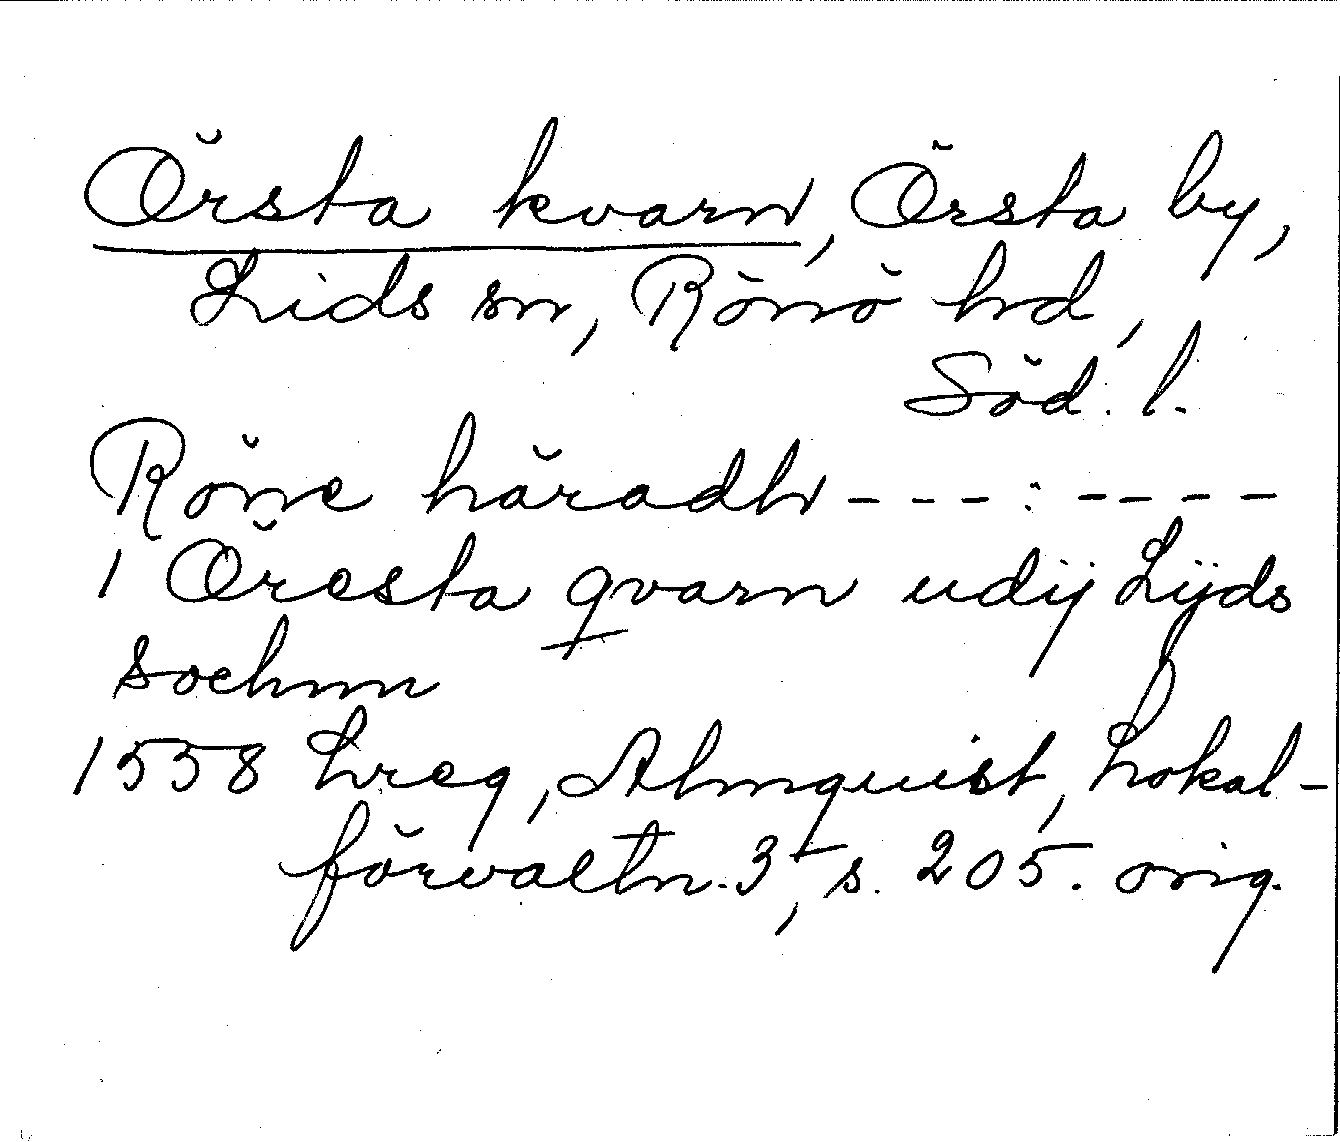 Örsta kvarn, Örsta by,
Lids sn, Rönö hd,
Söd. l.
Röne häradh - - - : - - - -
1 Öresta qvarn udij Lijds
sochnn
1558 Lreg, Almquist, Lokal-
förvaltn. 3, s. 205. orig.